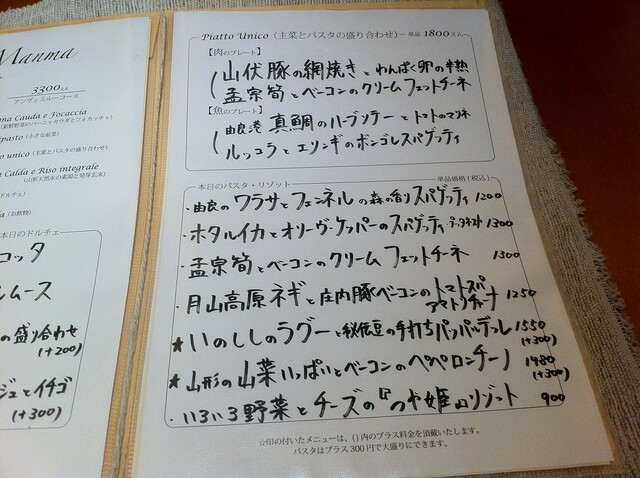 Manma
3300えん
アンヴェミルーコース
ma Cauda e Focaccia
(新鮮野菜のバーニャカウダとフォカッチャ)
ipasto (小さな前菜)
o unico (主菜とパスタの盛り合わせ)
Calda e Riso integrale
(山形天然水の素湯と発芽玄米)
(ドルチェ)
(お飲物)
本日のドルチェ
コッタ
ムース
の盛り合わせ
(+200)
ジュとイチゴ
(+300)
Piatto Unico (主菜とパスタの盛り合わせ) ー 単品 1800えん
【肉のプレート】
山伏豚の網焼きとわんぱく卵の半熟
孟宗筍とベーコンのクリームフェットチーネ
【魚のプレート】
由良港 真鯛のハーブソテーとトマトのマリネ
ルッコラとエリンギのボンゴレスパゲッティ
本日のパスタ・リゾット
単品価格(税込)
・由良のワラサとフェンネルの森の香りスパゲッティ 1200
・ホタルイカとオリーヴ・ケッパーのスパゲッティ 1300
・孟宗筍とベーコンのクリームフェットチーネ 1300
・月山高原ネギと庄内豚ベーコンのトマトスパ アマトリチャーナ 1250
★いのししのラグーと秘伝豆の手打ちパッパルデッレ 1550
(+300)
★山形の山菜いっぱいとベーコンのペペロンチーノ 1480
(+300)
・いろいろ野菜とチーズの『つや姫』リゾット 900
☆印の付いたメニューは、()内のプラス料金を頂戴いたします。
パスタはプラス300円で大盛りにできます。